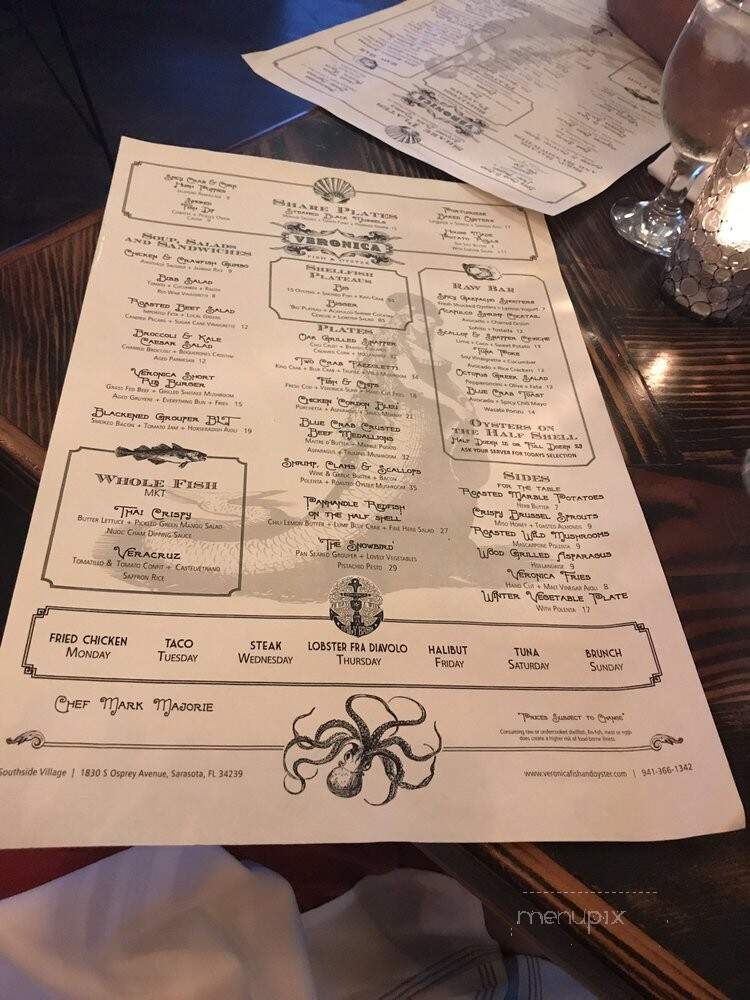 Spicy Crab & Chip
Hush Puppies
Jalapeño Remoulade 9
Smoked
Fish Dip
Share Plates
Steamed Black Mussels
Portuguese
Baked Oysters
House Made
Potato Rolls
Veronica
Fish & Oyster
Soup, Salads
and Sandwiches
Chicken & Crawfish Gumbo
Andouille Sausage + Jasmine Rice 9
Bibb Salad
Tomato + Cucumber + Radish
Red Wine Vinaigrette 8
Roasted Beet Salad
Imported Feta + Local Greens
Candied Pecans + Sugar Cane Vinaigrette 12
Broccoli & Kale
Caesar Salad
Charred Broccoli + Boquerones Crostini
Aged Parmesan 12
Veronica Short
Rib Burger
Grass Fed Beef + Grilled Shiitake Mushroom
Aged Gruyere + Everything Bun + Fries 15
Blackened Grouper BLT
Smoked Bacon + Tomato Jam + Horseradish Aioli 19
Whole Fish
MKT
Thai Crispy
Butter Lettuce + Pickled Green Mango Salad
Nuoc Cham Dipping Sauce
Veracruz
Tomatillo & Tomato Confit + Castelvetrano
Saffron Rice
Shellfish
Plateaus
Big
15 Oysters + Smoked Fish + King Crab 55
Bigger
"Big" Plateau + Acapulco Shrimp Cocktail
Ceviche + Lobster Salad 85
Plates
Oak Grilled Snapper
Two Crab Fazzoletti
King Crab + Blue Crab + Truffle + Wild Mushroom 34
Fish & Chips
Fresh Cod + Veronica Slaw + Hand Cut Fries 18
Chicken Cordon Bleu
Porchetta + Asparagus + Sauce Mornay 21
Blue Crab Crusted
Beef Medallions
Maitre d'Butter + Marble Potato
Asparagus + Trumpet Mushroom 32
Shrimp, Clams & Scallops
Wine & Garlic Butter + Bacon
Polenta + Roasted Oyster Mushroom 35
Panhandle Redfish
on the half shell
Chili Lemon Butter + Lump Blue Crab + Fine Herb Salad 27
"The Snowbird"
Pan Seared Grouper + Lovely Vegetables
Pistachio Pesto 29
Raw Bar
Spicy Gazpacho Shooters
Fresh Shucked Oysters + Lemon Yogurt 7
Acapulco Shrimp Cocktail
Avocado + Charred Onion
Sofrito + Tostada 12
Scallop & Snapper Ceviche
Lime + Coco + Sweet Potato 13
Tuna Poke
Soy Vinaigrette + Cucumber
Avocado + Rice Crackers 12
Octopus Greek Salad
Pepperoncini + Olive + Feta 13
Blue Crab Toast
Avocado + Spicy Chili Mayo
Wasabi Ponzu 14
Oysters on
the Half Shell
Half Dozen 15 or Full Dozen 28
ASK YOUR SERVER FOR TODAYS SELECTION
Sides
for the table
Roasted Marble Potatoes
Herb Butter 7
Crispy Brussel Sprouts
Miso Honey + Toasted Almonds 9
Roasted Wild Mushrooms
Mascarpone Polenta 9
Wood Grilled Asparagus
Hollandaise 9
Veronica Fries
Hand Cut + Malt Vinegar Aioli 8
Winter Vegetable Plate
With Polenta 17
FRIED CHICKEN
Monday
TACO
Tuesday
STEAK
Wednesday
LOBSTER FRA DIAVOLO
Thursday
HALIBUT
Friday
TUNA
Saturday
BRUNCH
Sunday
Chef Mark Majorie
"Prices Subject to Change"
Consuming raw or undercooked shellfish, fin fish, meat or eggs
does create a higher risk of food borne illness
Southside Village | 1830 S Osprey Avenue, Sarasota, FL 34239
www.veronicafishandoyster.com | 941-366-1342
menupix